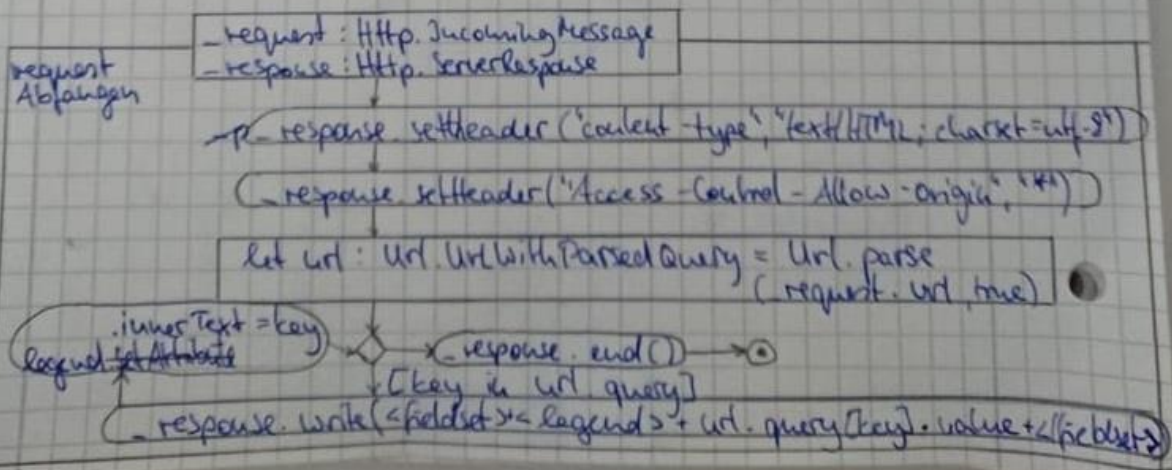 _request : Http.IncomingMessage
_response : Http.ServerResponse
request
Abfangen
_response.setheader("content-type", "text/HTML; charset=utf-8")
_response.setHeader("Access-Control-Allow-Origin", "*")
let url : Url.UrlWithParsedQuery = Url.parse
(_request.url, true)
.innerText = key
legend
_response.end()
[key in url.query]
_response.write(<fieldset><legend> + url.query[key].value + </fieldset>)